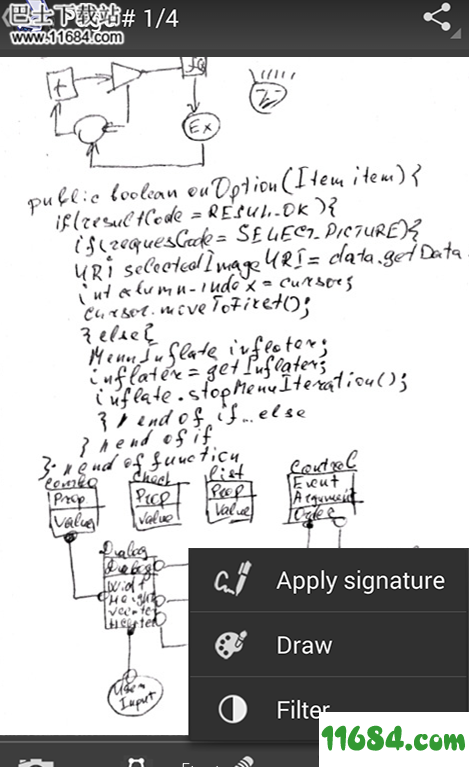 巴士下载站
www.11684.com
# 1/4
+
Ex
public boolean onOption(Item item){
if(resultCode = RESUL_OK){
if(requesCode = SELECT_PICTURE){
URI selectedImageURI = data.getData
int column-index = cursor;
cursor.moveToFirst();
}else{
MenuInflate inflater;
inflater = getInflater;
inflate.stopMenuIteration();
} // end of if...else
} // end of if
}. // end of function
Combo
Check
List
Control
Prop
Value
Prop
Value
Prop
Value
Event
Argument
Order
Dialog
Dialog
Widt
Height
Vcenter
Hcenter
User
Input
Apply signature
Draw
Filter
11684.com